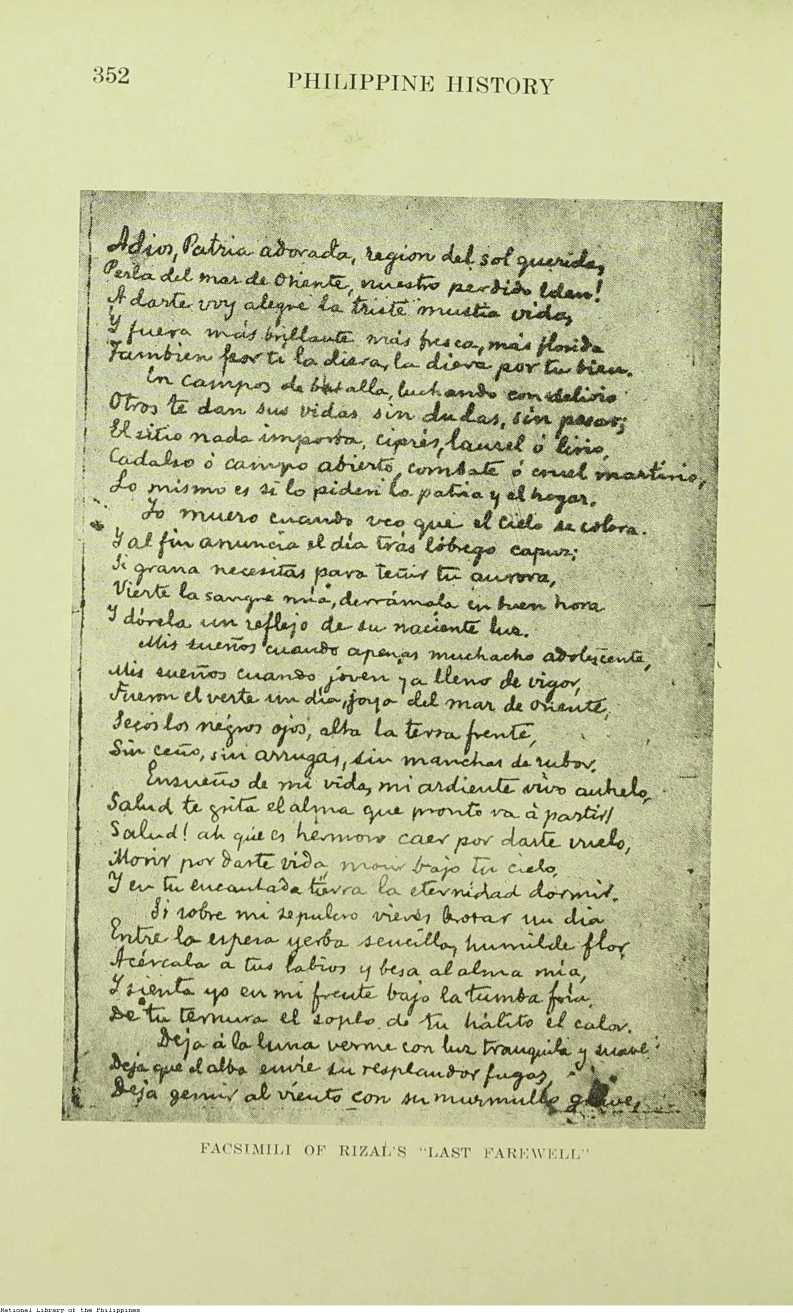 352
PHILIPPINE HISTORY
Adios, Patria adorada, region del sol querida,
Perla del mar de Oriente, nuestro perdido Eden!
A darte voy alegre la triste mustia vida,
Y fuera más brillante más fresca, más florida
Tambien por ti la diera, la diera por tu bien.
En campos de batalla, luchando con delirio
Otros te dan sus vidas sin dudas, sin pesar;
El sitio nada importa, ciprés, laurel ó lirio,
Cadalso ó campo abierto, combate ó cruel martirio,
Lo mismo es si lo piden la patria y el hogar.
Yo muero cuando veo que el cielo se colora.
Y al fin anuncia el día trás lóbrego capuz;
Si grana necesitas para teñir tu aurora,
Vierte la sangre mía, derrámala en buen hora
Y dórela un reflejo de su naciente luz.
Mis sueños cuando apenas muchacho adolescente,
Mis sueños cuando joven ya lleno de vigor,
Fueron el verte un día, joya del mar de oriente,
Secos los negros ojos, alta la tersa frente,
Sin ceño, sin arrugas, sin manchas de rubor.
Ensueño de mi vida, mi ardiente vivo anhelo,
Salud te grita el alma que pronto va á partir!
Salud! ah que es hermoso caer por darte vuelo,
Morir por darte vida, morir bajo tu cielo,
Y en tu encantada tierra la eternidad dormir.
Si sobre mi sepulcro vieres brotar un dia
Entre la espesa yerba sencilla, humilde flor,
Acércala a tus labios y besa al alma mía,
Y sienta yo en mi frente bajo la tumba fria,
De tu ternura el soplo, de tu hálito el calor.
Deja á la luna verme con luz tranquila y suave:
Deja que el alba envíe su resplandor fugaz,
Deja gemir al viento con su murmullo grave,
FACSIMILI OF RIZAL'S "LAST FAREWELL"
National Library of the Philippines